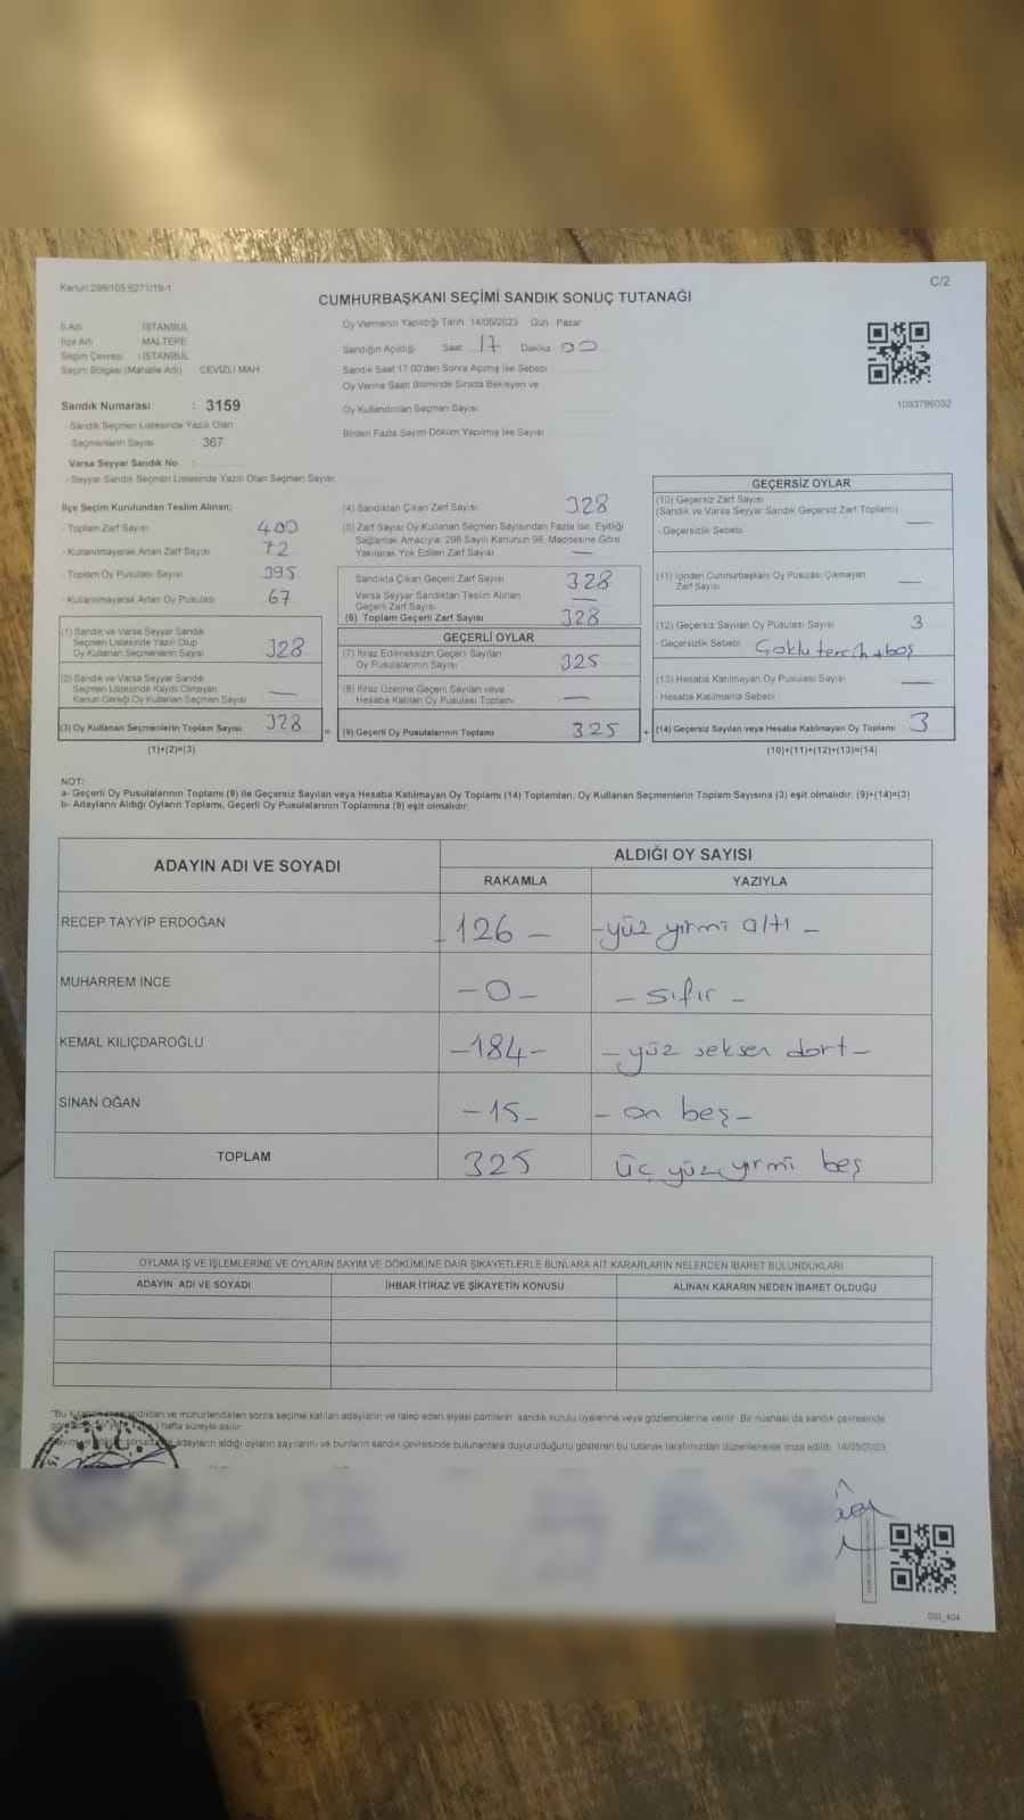 C/2
CUMHURBAŞKANI SEÇİMİ SANDIK SONUÇ TUTANAĞI
İl Adı : İSTANBUL
İlçe Adı : MALTEPE
Seçim Çevresi : İSTANBUL
Seçim Bölgesi (Mahalle Adı) CEVİZLİ MAH.
Oy Vermenin Yapıldığı Tarih: 14/05/2023 Gün: Pazar
Sandığın Açıldığı Saat 17 Dakika 00
Sandık Saat 17.00'den Sonra Açılmış İse Sebebi
Oy Verme Saati Bitiminde Sırada Bekleyen ve
Oy Kullandırılan Seçmen Sayısı
Birden Fazla Sayım Döküm Yapılmış İse Sayısı
1093796032
Sandık Numarası : 3159
- Sandık Seçmen Listesinde Yazılı Olan
Seçmenlerin Sayısı 367
Varsa Seyyar Sandık No :
- Seyyar Sandık Seçmen Listesinde Yazılı Olan Seçmen Sayısı:
İlçe Seçim Kurulundan Teslim Alınan;
- Toplam Zarf Sayısı 400
- Kullanılmayarak Artan Zarf Sayısı 72
- Toplam Oy Pusulası Sayısı 395
- Kullanılmayarak Artan Oy Pusulası 67
(1) Sandık ve Varsa Seyyar Sandık
Seçmen Listesinde Yazılı Olup
Oy Kullanan Seçmenlerin Sayısı 328
(2) Sandık ve Varsa Seyyar Sandık
Seçmen Listesinde Kaydı Olmayan
Kanun Gereği Oy Kullanan Seçmen Sayısı —
(3) Oy Kullanan Seçmenlerin Toplam Sayısı 328
(1)+(2)=(3)
(4) Sandıktan Çıkan Zarf Sayısı 328
(5) Zarf Sayısı Oy Kullanan Seçmen Sayısından Fazla İse, Eşitliği
Sağlamak Amacıyla, 298 Sayılı Kanunun 98. Maddesine Göre
Yakılarak Yok Edilen Zarf Sayısı —
Sandıkta Çıkan Geçerli Zarf Sayısı 328
Varsa Seyyar Sandıktan Teslim Alınan
Geçerli Zarf Sayısı —
(6) Toplam Geçerli Zarf Sayısı 328
GEÇERLİ OYLAR
(7) İtiraz Edilmeksizin Geçerli Sayılan
Oy Pusulalarının Sayısı 325
(8) İtiraz Üzerine Geçerli Sayılan veya
Hesaba Katılan Oy Pusulası Toplamı —
(9) Geçerli Oy Pusulalarının Toplamı 325
GEÇERSİZ OYLAR
(10) Geçersiz Zarf Sayısı
(Sandık ve Varsa Seyyar Sandık Geçersiz Zarf Toplamı) —
- Geçersizlik Sebebi:
(11) İçinden Cumhurbaşkanı Oy Pusulası Çıkmayan
Zarf Sayısı —
(12) Geçersiz Sayılan Oy Pusulası Sayısı 3
- Geçersizlik Sebebi: boş
(13) Hesaba Katılmayan Oy Pusulası Sayısı —
- Hesaba Katılmama Sebebi:
(14) Geçersiz Sayılan veya Hesaba Katılmayan Oy Toplamı 3
(10)+(11)+(12)+(13)=(14)
NOT:
a- Geçerli Oy Pusulalarının Toplamı (9) ile Geçersiz Sayılan veya Hesaba Katılmayan Oy Toplamı (14) Toplamları, Oy Kullanan Seçmenlerin Toplam Sayısına (3) eşit olmalıdır. (9)+(14)=(3)
b- Adayların Aldığı Oyların Toplamı, Geçerli Oy Pusulalarının Toplamına (9) eşit olmalıdır.
ADAYIN ADI VE SOYADI
ALDIĞI OY SAYISI
RAKAMLA YAZIYLA
RECEP TAYYİP ERDOĞAN - 126 - - yüz yirmi altı -
MUHARREM İNCE - 0 - - sıfır -
KEMAL KILIÇDAROĞLU - 184 - - yüz seksen dört -
SİNAN OĞAN - 15 - - on beş -
TOPLAM 325 üç yüz yirmi beş
OYLAMA İŞ VE İŞLEMLERİNE VE OYLARIN SAYIM VE DÖKÜMÜNE DAİR ŞİKAYETLERLE BUNLARA AİT KARARLARIN NELERDEN İBARET BULUNDUKLARI
ADAYIN ADI VE SOYADI İHBAR İTİRAZ VE ŞİKAYETİN KONUSU ALINAN KARARIN NEDEN İBARET OLDUĞU
T.C.